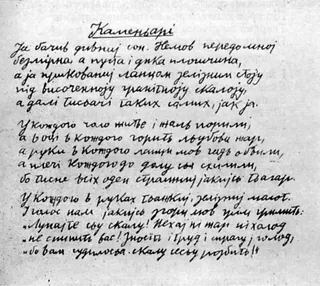 Каменьарі
Ја бачив дивниј сон. Немов передомноју
безмірна а пуста і дика плошчина,
а ја прикованиј ланцом зелізним стоју
під височенноју гранітноју скалоју,
а далі тисьачі таких самих, јак ја.
У кождого чоло житье і жаль порили,
а в очі в кождого горить льубови жар,
а руки в кождого ланци мов гадь обвили,
а плечі кождого до долу сьа схилили,
бо тисне всіх оден страшниј јакијсь тьагар.
У кождого в руках тьажкиј, зелізниј молот.
І голос нам јакијсь згори мов грім гримить:
„Лупајте сьу скалу! Нехај ні жар ні холод
„не спинить вас! Зносіть і труд і спрагу і голод,
„бо вам судилосьа скалу сесьу розбить!"